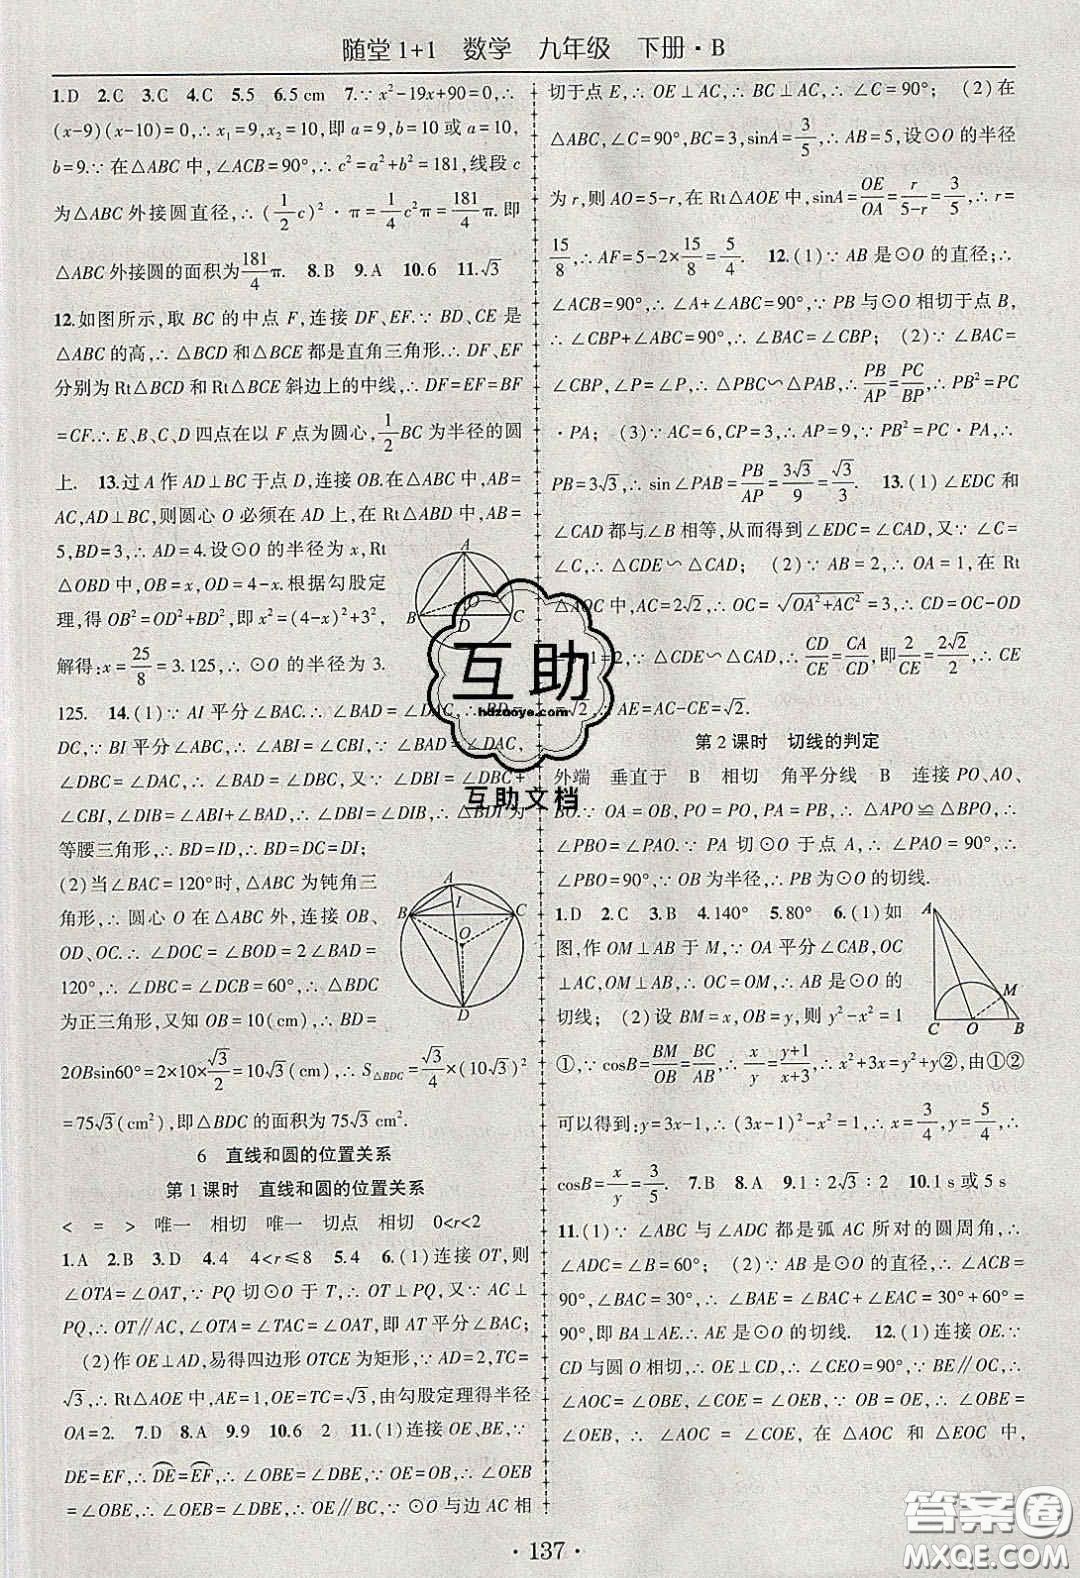 随堂1+1 数学 九年级 下册·B
1.D 2.C 3.C 4.C 5.5 6.5 cm 7.∵x²-19x+90=0,∴
(x-9)(x-10)=0,∴x₁=9,x₂=10,即a=9,b=10或a=10,
b=9.∵在△ABC中,∠ACB=90°,∴c²=a²+b²=181,线段c
为△ABC外接圆直径,∴(1/2c)²·π=1/4c²π=181/4π.即
△ABC外接圆的面积为181/4π. 8.B 9.A 10.6 11.√3
12.如图所示,取BC的中点F,连接DF、EF.∵BD、CE是
△ABC的高,∴△BCD和△BCE都是直角三角形.∴DF、EF
分别为Rt△BCD和Rt△BCE斜边上的中线,∴DF=EF=BF
=CF.∴E、B、C、D四点在以F点为圆心,1/2BC为半径的圆
上. 13.过A作AD⊥BC于点D,连接OB.在△ABC中,AB=
AC,AD⊥BC,则圆心O必须在AD上,在Rt△ABD中,AB=
5,BD=3,∴AD=4.设⊙O的半径为x,Rt
△OBD中,OB=x,OD=4-x.根据勾股定
理,得OB²=OD²+BD²,即x²=(4-x)²+3²,
解得:x=25/8=3.125,∴⊙O的半径为3.
A
O
B
D
C
125. 14.(1)∵AI平分∠BAC.∴∠BAD=∠DAC,∴BD=
DC,∵BI平分∠ABC,∴∠ABI=∠CBI,∵∠BAD=∠DAC,
∠DBC=∠DAC,∴∠BAD=∠DBC,又∵∠DBI=∠DBC+
∠CBI,∠DIB=∠ABI+∠BAD.∴∠DBI=∠DIB,∴△BDI为
等腰三角形,∴BD=ID,∴BD=DC=DI;
(2)当∠BAC=120°时,△ABC为钝角三
角形,∴圆心O在△ABC外,连接OB、
OD、OC.∴∠DOC=∠BOD=2∠BAD=
120°,∴∠DBC=∠DCB=60°,∴△BDC
为正三角形,又知OB=10(cm),∴BD=
A
I
B
C
O
D
2OBsin60°=2×10×√3/2=10√3(cm),∴S△BDC=√3/4×(10√3)²
=75√3(cm²),即△BDC的面积为75√3(cm²).
6 直线和圆的位置关系
第1课时 直线和圆的位置关系
< = > 唯一 相切 唯一 切点 相切 0<r<2
1.A 2.B 3.D 4.4 4<r≤8 5.4 6.(1)连接OT,则
∠OTA=∠OAT,∵PQ切⊙O于T,∴OT⊥PQ,又∵AC⊥
PQ,∴OT∥AC,∴∠OTA=∠TAC=∠OAT,即AT平分∠BAC.
(2)作OE⊥AD,易得四边形OTCE为矩形,∵AD=2,TC=
√3,∴Rt△AOE中,AE=1,OE=TC=√3,由勾股定理得半径
OA=2. 7.D 8.A 9.9 10.6 2 11.(1)连接OE、BE,∵
DE=EF,∴DE=EF,∴∠OBE=∠DBE,∵OE=OB,∴∠OEB
=∠OBE,∴∠OEB=∠DBE,∴OE∥BC,∵⊙O与边AC相
切于点E,∴OE⊥AC,∴BC⊥AC,∴∠C=90°; (2)在
△ABC,∠C=90°,BC=3,sinA=3/5,∴AB=5,设⊙O的半径
为r,则AO=5-r,在Rt△AOE中,sinA=OE/OA=r/5-r=3/5,∴r=
15/8,∴AF=5-2×15/8=5/4. 12.(1)∵AB是⊙O的直径;∴
∠ACB=90°,∴∠A+∠ABC=90°,∵PB与⊙O相切于点B,
∴∠CBP+∠ABC=90°,∴∠BAC=∠CBP; (2)∵∠BAC=
∠CBP,∠P=∠P,∴△PBC∽△PAB,∴PB/AP=PC/BP,∴PB²=PC
·PA; (3)∵AC=6,CP=3,∴AP=9,∵PB²=PC·PA,∴
PB=3√3,∴sin∠PAB=PB/AP=3√3/9=√3/3. 13.(1)∠EDC和
∠CAD都与∠B相等,从而得到∠EDC=∠CAD,又∵∠C=
∠C,∴△CDE∽△CAD; (2)∵AB=2,∴OA=1,在Rt
△AOC中,AC=2√2,∴OC=√OA²+AC²=3,∴CD=OC-OD
1=2,∵△CDE∽△CAD,∴CD/CE=CA/CD,即2/CE=2√2/2,∴CE
√2,∴AE=AC-CE=√2.
第2课时 切线的判定
外端 垂直于 B 相切 角平分线 B 连接PO、AO、
BO.∵OA=OB,PO=PO,PA=PB,∴△APO≌△BPO,∴
∠PBO=∠PAO.∵PA切⊙O于点A,∴∠PAO=90°,∴
∠PBO=90°,∵OB为半径,∴PB为⊙O的切线.
1.D 2.C 3.B 4.140° 5.80° 6.(1)如
图,作OM⊥AB于M,∵OA平分∠CAB,OC
⊥AC,OM⊥AB,∴OC=OM,∴AB是⊙O的
切线; (2)设BM=x,OB=y,则y²-x²=1
A
M
C
O
B
①,∵cosB=BM/OB=BC/AB,∴x/y=y+1/x+3,∴x²+3x=y²+y②,由①②
可以得到:y=3x-1,∴(3x-1)²-x²=1,∴x=3/4,y=5/4,∴
cosB=x/y=3/5. 7.B 8.A 9.1∶2√3∶2 10.1 s或5 s
11.(1)∵∠ABC与∠ADC都是弧AC所对的圆周角,∴
∠ADC=∠B=60°; (2)∵AB是⊙O的直径,∴∠ACB=
90°,∠BAC=30°,∴∠BAE=∠BAC+∠EAC=30°+60°=
90°,即BA⊥AE.∴AE是⊙O的切线. 12.(1)连接OE.∵
CD与圆O相切,∴OE⊥CD,∴∠CEO=90°,∵BE∥OC,∴
∠AOC=∠OBE,∠COE=∠OEB,∵OB=OE,∴∠OBE=
∠OEB,∴∠AOC=∠COE,在△AOC和△EOC中,
·137·
互助
hdzuoye.com
互助文档
答案圈
MXQE.COM